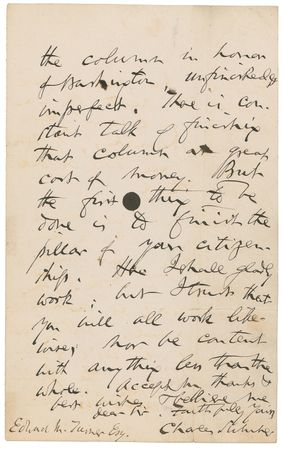 the column in honor
of Washington, unfinished &
imperfect. There is con-
stant talk of finishing
that column at great
cost of money. But
the first thing to be
done is to finish the
pillar of your citizen-
ship. I shall gladly
work; but I trust that
you will all work like-
wise, nor be content
with anything less than the
whole. Accept my thanks &
best wishes & believe me
dear Sir, faithfully yours
Edward M. Turner Esq. Charles Sumner